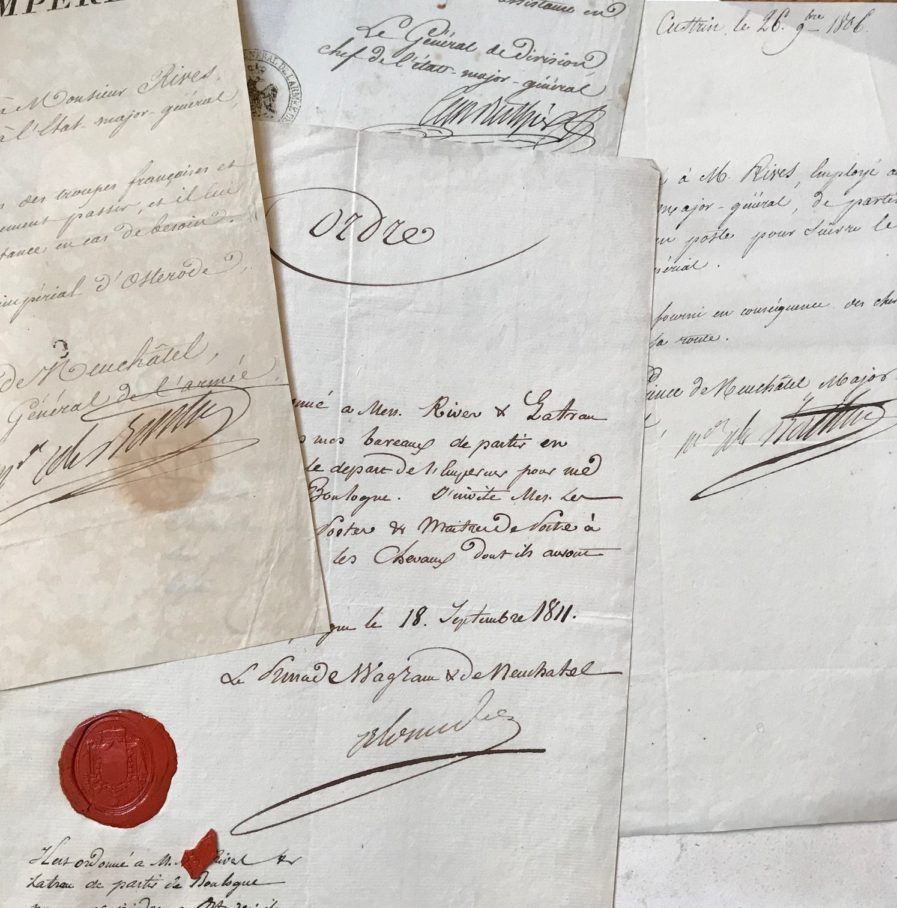 MPERI
à Monsieur Rives,
à l'Etat-major-général,
des troupes françaises et
passer, et il lui
en cas de besoin.
impérial d'Osterode,
de Neuchâtel,
Général de l'armée
assistance en
Le Général de division
chef de l'état-major-général
Custrin le 26. 9bre 1806.
à M. Rives, Employé a
major-général, de partir
en poste pour suivre le
périal.
fourni en conséquence des che
la route.
ince de Neuchâtel Major
Ordre
à Mrs. Rives & Latran
mes bureaux de partir en
le départ de l'Empereur pour
Boulogne. J'invite Mrs. les
Postes & Maitres de Poste à
les Chevaux dont ils auront
gne le 18. Septembre 1811.
Le Prince de Wagram & de Neuchatel
ordonné à M. Rives &
Latran de partir de Boulogne